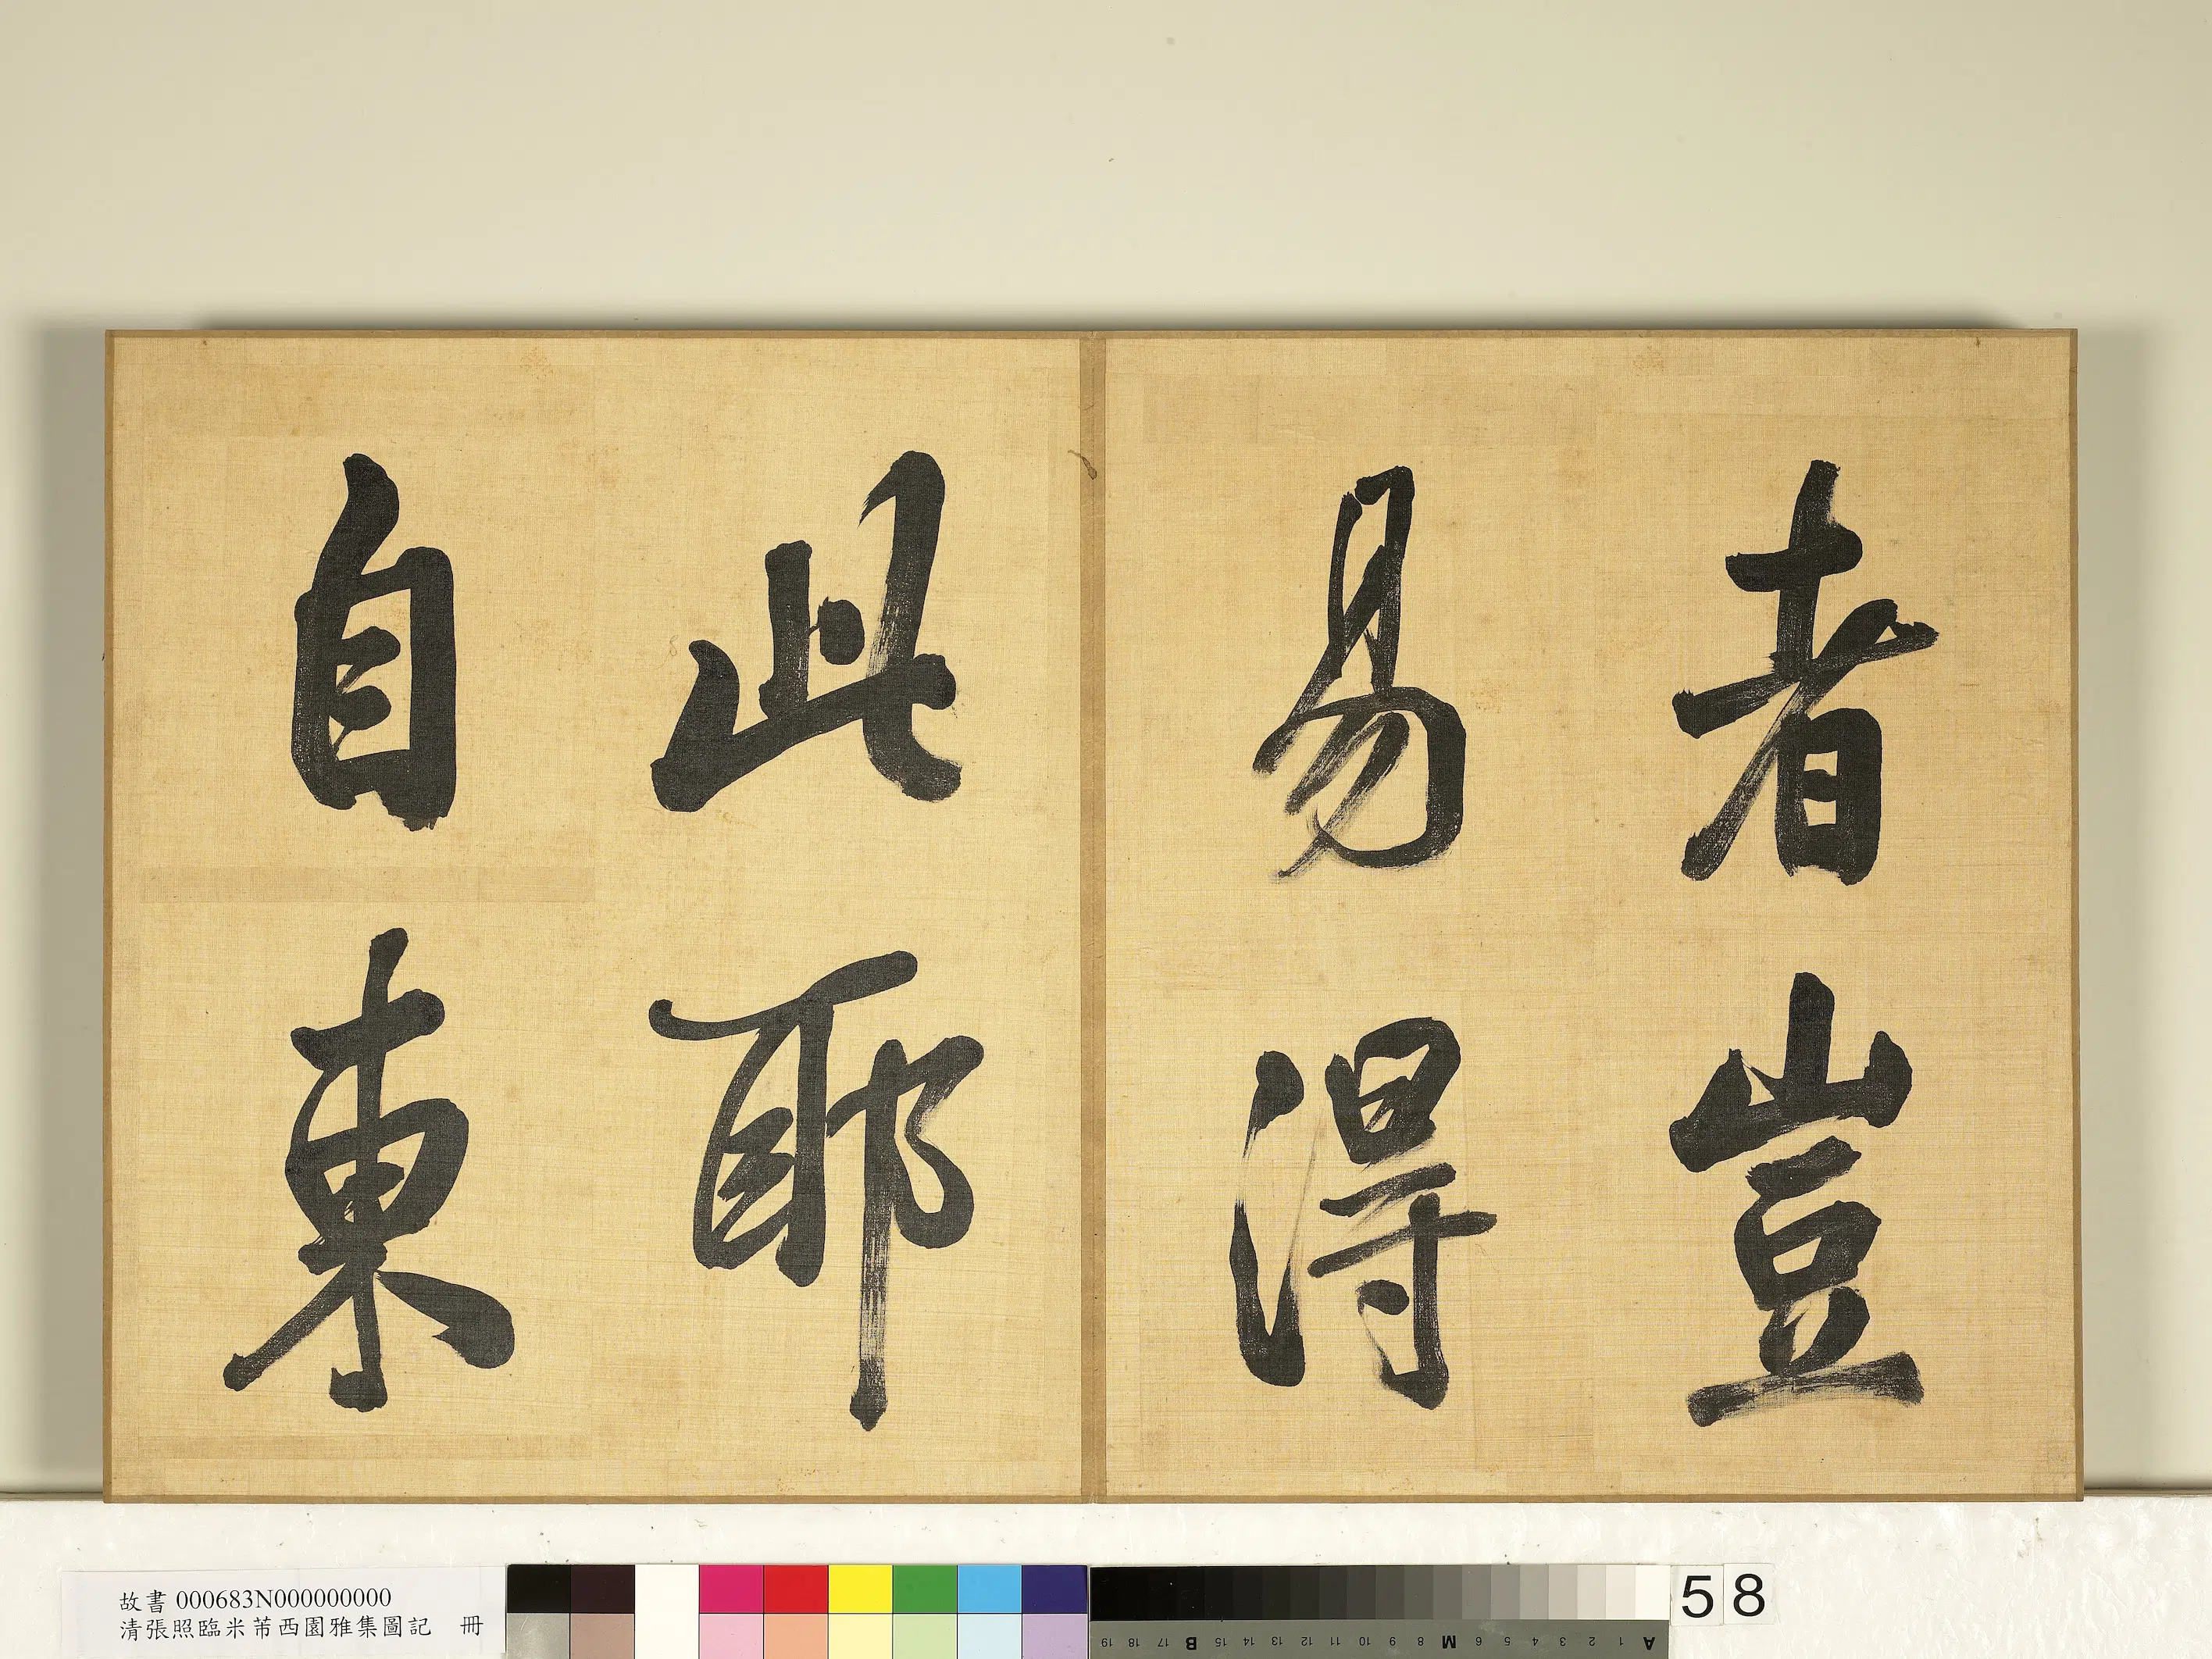 者豈
易得
此耶
自東
故書 000683N000000000
清張照臨米芾西園雅集圖記 冊
58
19 18 17 B 15 14 13 12 11 10 9 8 M 6 5 4 3 2 1 A